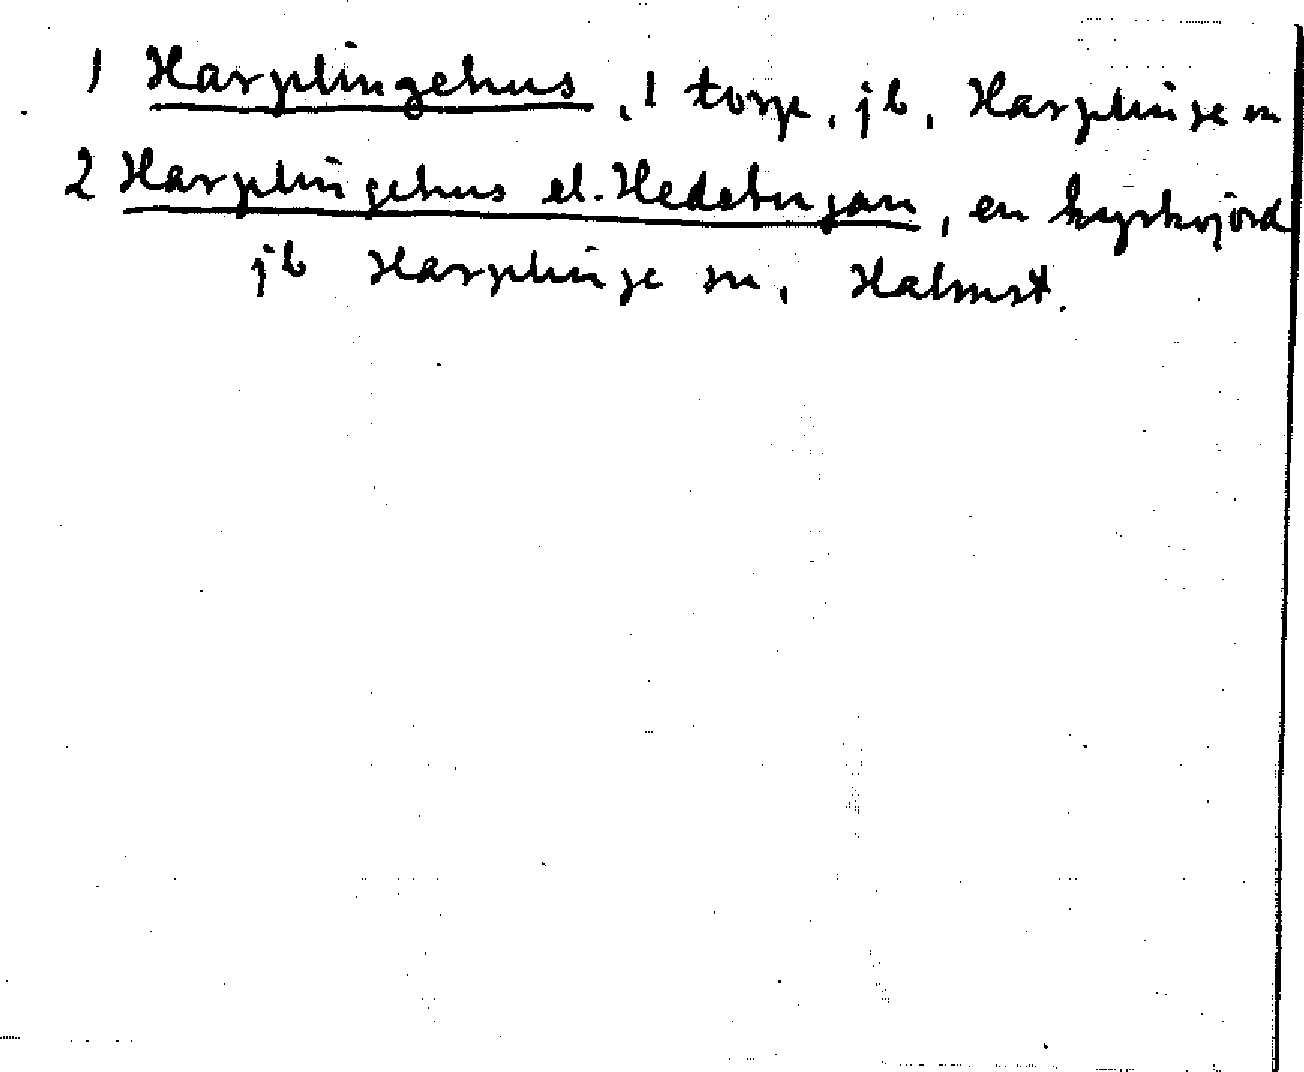 1 Harplingehus, 1 torp, jb, Harplinge sn
2 Harplingehus el. Hedstugan, en kyrkojord
jb Harplinge sn, Halmst.